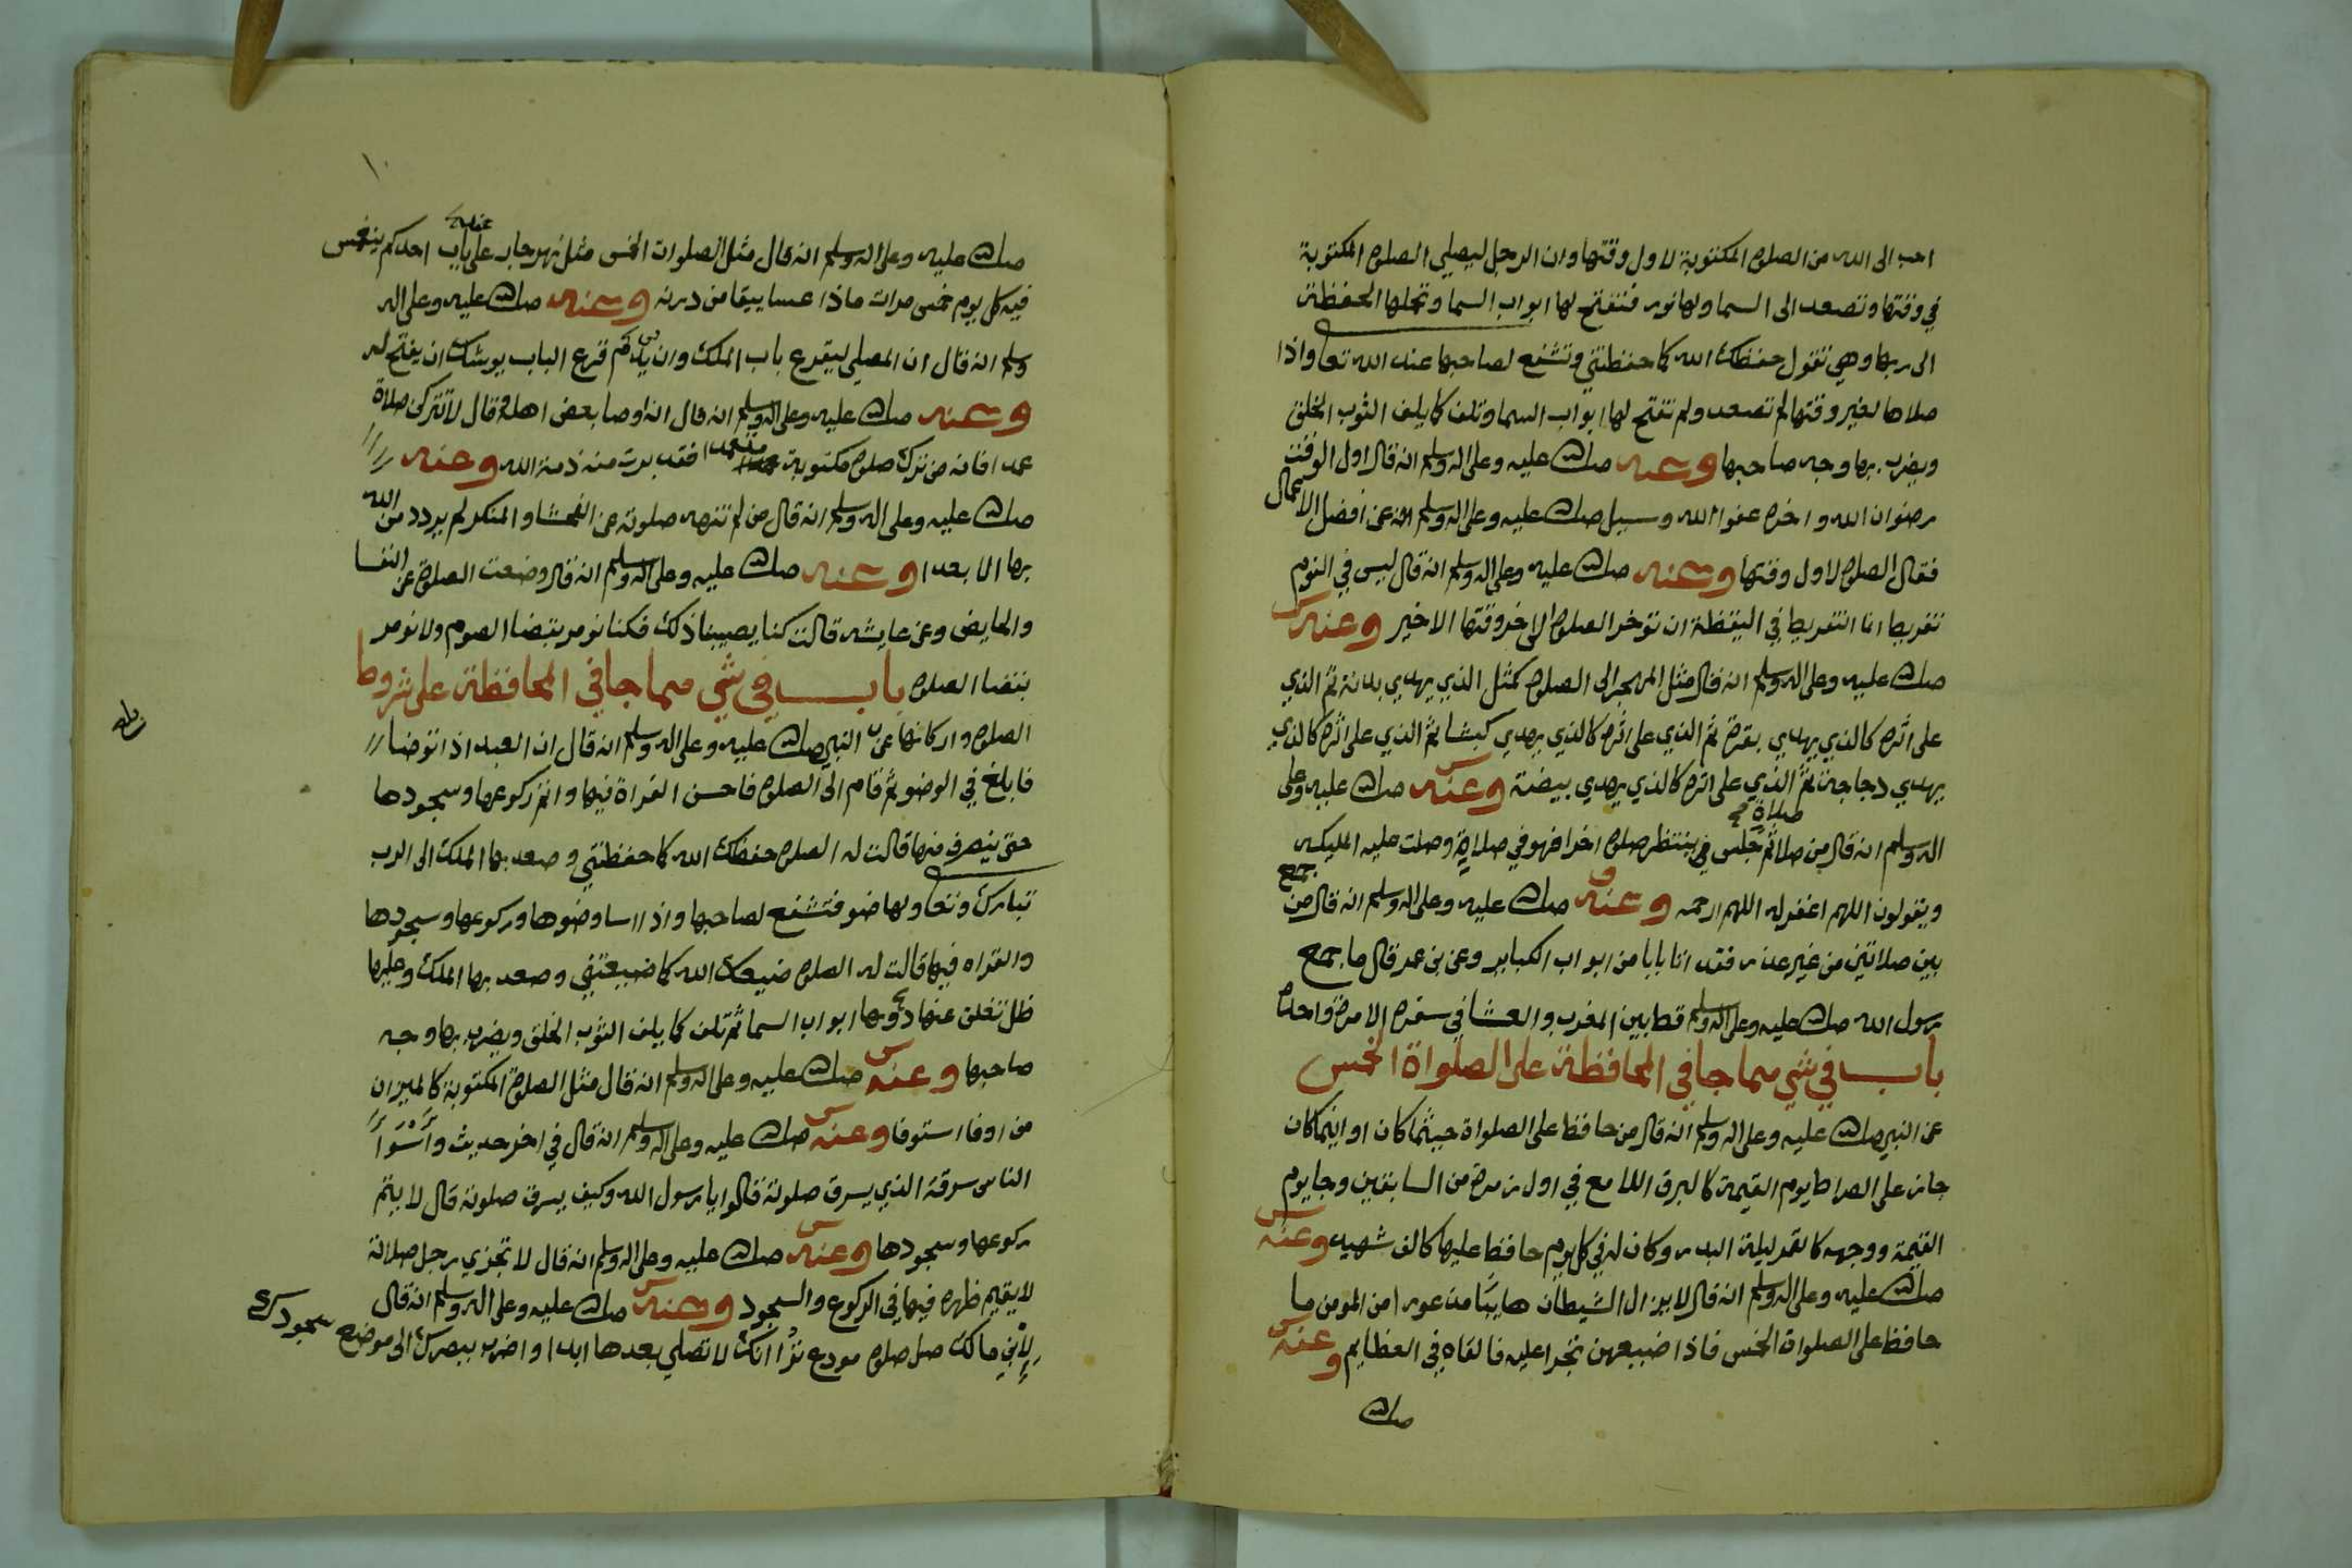 احب الى الله من الصلوه المكتوبة لاول وقتها وان الرجل ليصلي الصلوه المكتوبة
في وقتها وتصعد الى السما ولها نور فتفتح لها ابواب السما وتحملها الحفظة
الى ربها وهي تقول حفظك الله كما حفظتني وتشفع لصاحبها عند الله تعا واذا
صلاها لغير وقتها لم تصعد ولم تفتح لها ابواب السما وتلف كما يلف الثوب الخلق
ويضرب بها وجه صاحبها وعنه صلى الله عليه وعلى اله وسلم انه قال اول الوقت
رضوان الله واخره عفوا الله وسيل صلى الله عليه وعلى اله وسلم عن افضل الاعمال
فقال الصلوه لاول وقتها وعنه صلى الله عليه وعلى اله وسلم انه قال ليس في النوم
تفريط انما التفريط في اليقظة ان توخر الصلوه الى اخر وقتها الاخير وعنه
صلى الله عليه وعلى اله وسلم انه قال مثل المهجر الى الصلوه كمثل الذي يهدي بدنة ثم الذي
على اثره كالذي يهدي بقرة ثم الذي على اثره كالذي يهدي كبشا ثم الذي على اثره كالذي
يهدي دجاجة ثم الذي على اثره كالذي يهدي بيضة وعنه صلى الله عليه وعلى
اله وسلم انه قال من صلا صلاة ثم جلس ينتظر صلوه اخرا فهو في صلاة وصلت عليه المليكه
ويقولون اللهم اغفر له اللهم ارحمه وعنه صلى الله عليه وعلى اله وسلم انه قال من جمع
بين صلاتين من غير عذر فقد اتا بابا من ابواب الكباير وعن بن عمر قال ما جمع
رسول الله صلى الله عليه وعلى اله وسلم قط بين المغرب والعشا في سفره الا مرة واحدة
باب في شي مما جا في المحافظة على الصلواة الخمس
عن النبي صلى الله عليه وعلى اله وسلم انه قال من حافظ على الصلواة حيثما كان او اينما كان
جاز على الصراط يوم القيمة كالبرق اللامع في اول زمرة من السابقين وجا يوم
القيمة ووجهه كالقمر ليلة البدر وكان له في كل يوم حافظ عليها كالف شهيد وعنه
صلى الله عليه وعلى اله وسلم انه قال لا يزال الشيطان هايبا من المومن ما
حافظ على الصلواة الخمس فاذا ضيعهن تجرا عليه فالقاه في العظايم وعنه
صلى الله
١٠
صلى الله عليه وعلى اله وسلم انه قال مثل الصلوات الخمس مثل نهر جار على باب احدكم ينغمس
فيه كل يوم خمس مرات ماذا عسا يبقا من درنه وعنه صلى الله عليه وعلى اله
وسلم انه قال ان المصلي ليقرع باب الملك وان يدم قرع الباب يوشك ان يفتح له
وعنه صلى الله عليه وعلى اله وسلم انه قال انه اوصا بعض اهله وقال لا تتركن صلاة
عمدا فانه من ترك صلوه مكتوبة متعمدا فقد برت منه ذمة الله وعنه
صلى الله عليه وعلى اله وسلم انه قال من لم تنهه صلوته عن الفحشا والمنكر لم يزدد من الله
بها الا بعدا وعنه صلى الله عليه وعلى اله وسلم انه قال وضعت الصلوه عن النفسا
والحايض وعن عايشه قالت كنا يصيبنا ذلك فكنا نومر بقضا الصوم ولا نومر
بقضا الصلوه باب في شي مما جا في المحافظة على شروط
الصلوه واركانها عن النبي صلى الله عليه وعلى اله وسلم انه قال ان العبد اذا توضا
فابلغ في الوضو ثم قام الى الصلوه فاحسن القراة فيها واتم ركوعها وسجودها
حتى ينصرف منها قالت له الصلوه حفظك الله كما حفظتني وصعد بها الملك الى الرب
تبارك وتعا ولها ضو فتشفع لصاحبها واذا اسا وضوها وركوعها وسجودها
والقراه فيها قالت له الصلوه ضيعك الله كما ضيعتني وصعد بها الملك وعليها
ظل تغلق عنها دونها ابواب السما ثم تلف كما يلف الثوب الخلق ويضرب بها وجه
صاحبها وعنه صلى الله عليه وعلى اله وسلم انه قال مثل الصلوة المكتوبة كالميزان
من اوفا استوفا وعنه صلى الله عليه وعلى اله وسلم انه قال في اخر حديث واسوا
الناس سرقة الذي يسرق صلوته قالوا يا رسول الله وكيف يسرق صلوته قال لا يتم
ركوعها وسجودها وعنه صلى الله عليه وعلى اله وسلم انه قال لا تجزي رجل صلاته
لا يقيم ظهره فيها في الركوع والسجود وعنه صلى الله عليه وعلى اله وسلم انه قال
لابني مالك صل صلوه مودع ترا انك لا تصلي بعدها ابدا واضرب ببصرك الى موضع سجودك